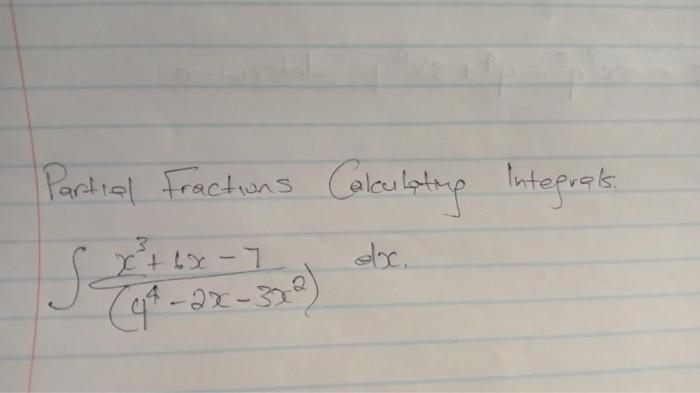 Partial Fractions Calculating Integrals.
∫ x³ + 6x - 7 / (y⁴ - 2x - 3x²) dx.